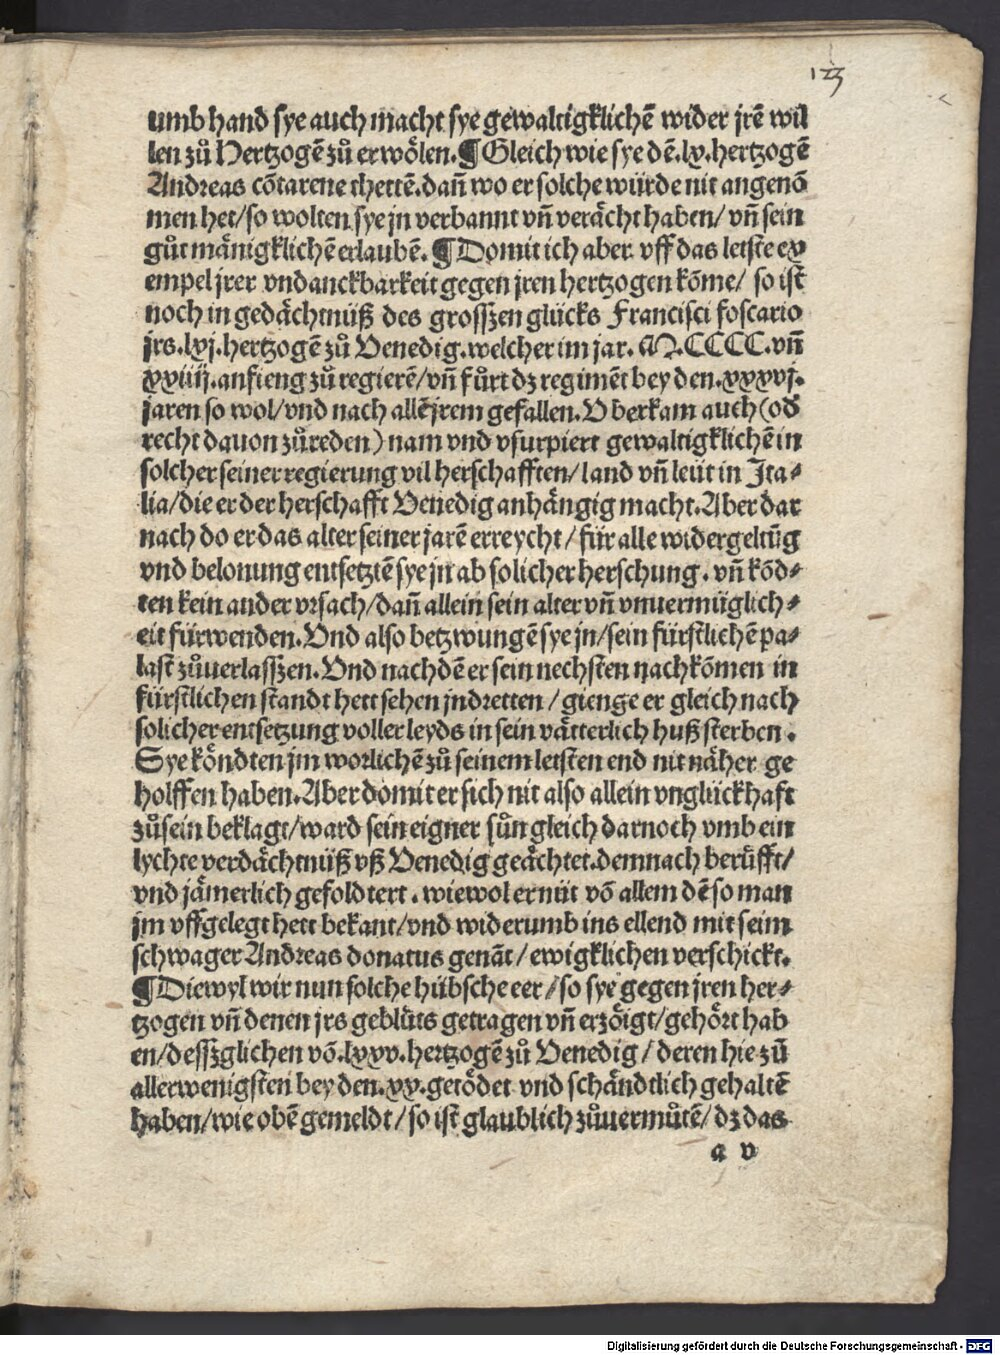 123
umb hand sye auch macht sye gewaltigklichē wider jrē wil
len zů Hertzogē zů erwölen. ¶ Gleich wie sye dē .lx. hertzogē
Andreas cōtarene thettē. dañ wo er solche würde nit angenō
men het / so wolten sye jn verbannt vñ verächt haben / vñ sein
gůt mänigklichē erlaubē. ¶ Domit ich aber vff das letste ex
empel jrer vndanckbarkeit gegen jren hertzogen kōme / so ist
noch in gedächtnüß des grosszen glücks Francisci foscario
jrs .lxj. hertzogē zů Venedig. welcher im jar. M.CCCC. vñ
xxiiij. anfieng zů regierē / vñ fůrt dz regimēt bey den .xxxvj.
jaren so wol / vnd nach allē jrem gefallen. Vberkam auch (od
recht dauon zů reden) nam vnd vsurpiert gewaltigklichē in
solcher seiner regierung vil herschafften / land vñ leüt in Ita⸗
lia / die er der herschafft Venedig anhängig macht. Aber dar
nach do er das alter seiner jarē erreycht / für alle widergeltūg
vnd belonung entsetztē sye jn ab solicher herschung. vñ kōd⸗
ten kein ander vrsach / dañ allein sein alter vñ vnuermüglich⸗
eit fürwenden. Vnd also betzwungē sye jn / sein fürstlichē pa⸗
last zůuerlasszen. Vnd nachdē er sein nechsten nachkōmen in
fürstlichen standt hett sehen jndretten / gienge er gleich nach
solicher entsetzung voller leyds in sein vätterlich huß sterben.
Sye köndten jm worlichē zů seinem letsten end nit näher ge
holffen haben. Aber domit er sich nit also allein vnglückhafft
zůsein beklagt / ward sein eigner sůn gleich darnoch vmb ein
lychte verdächtnüß vß Venedig geächtet. demnach berůfft /
vnd jämerlich gefoldtert. wiewol er nüt vō allem dē so man
jm vffgelegt hett bekant / vnd widerumb ins ellend mit seim
schwager Andreas donatus genāt / ewigklichen verschickt.
¶ Diewyl wir nun solche hübsche eer / so sye gegen jren her⸗
tzogen vñ denen jrs geblůts getragen vñ erzöigt / gehört hab
en / desszglichen vō .lxxv. hertzogē zů Venedig / deren hie zū
allerwenigsten bey den .xx. getödet vnd schändtlich gehaltē
haben / wie obē gemeldt / so ist glaublich zůuermůtē / dz das
a v
Digitalisierung gefördert durch die Deutsche Forschungsgemeinschaft - DFG